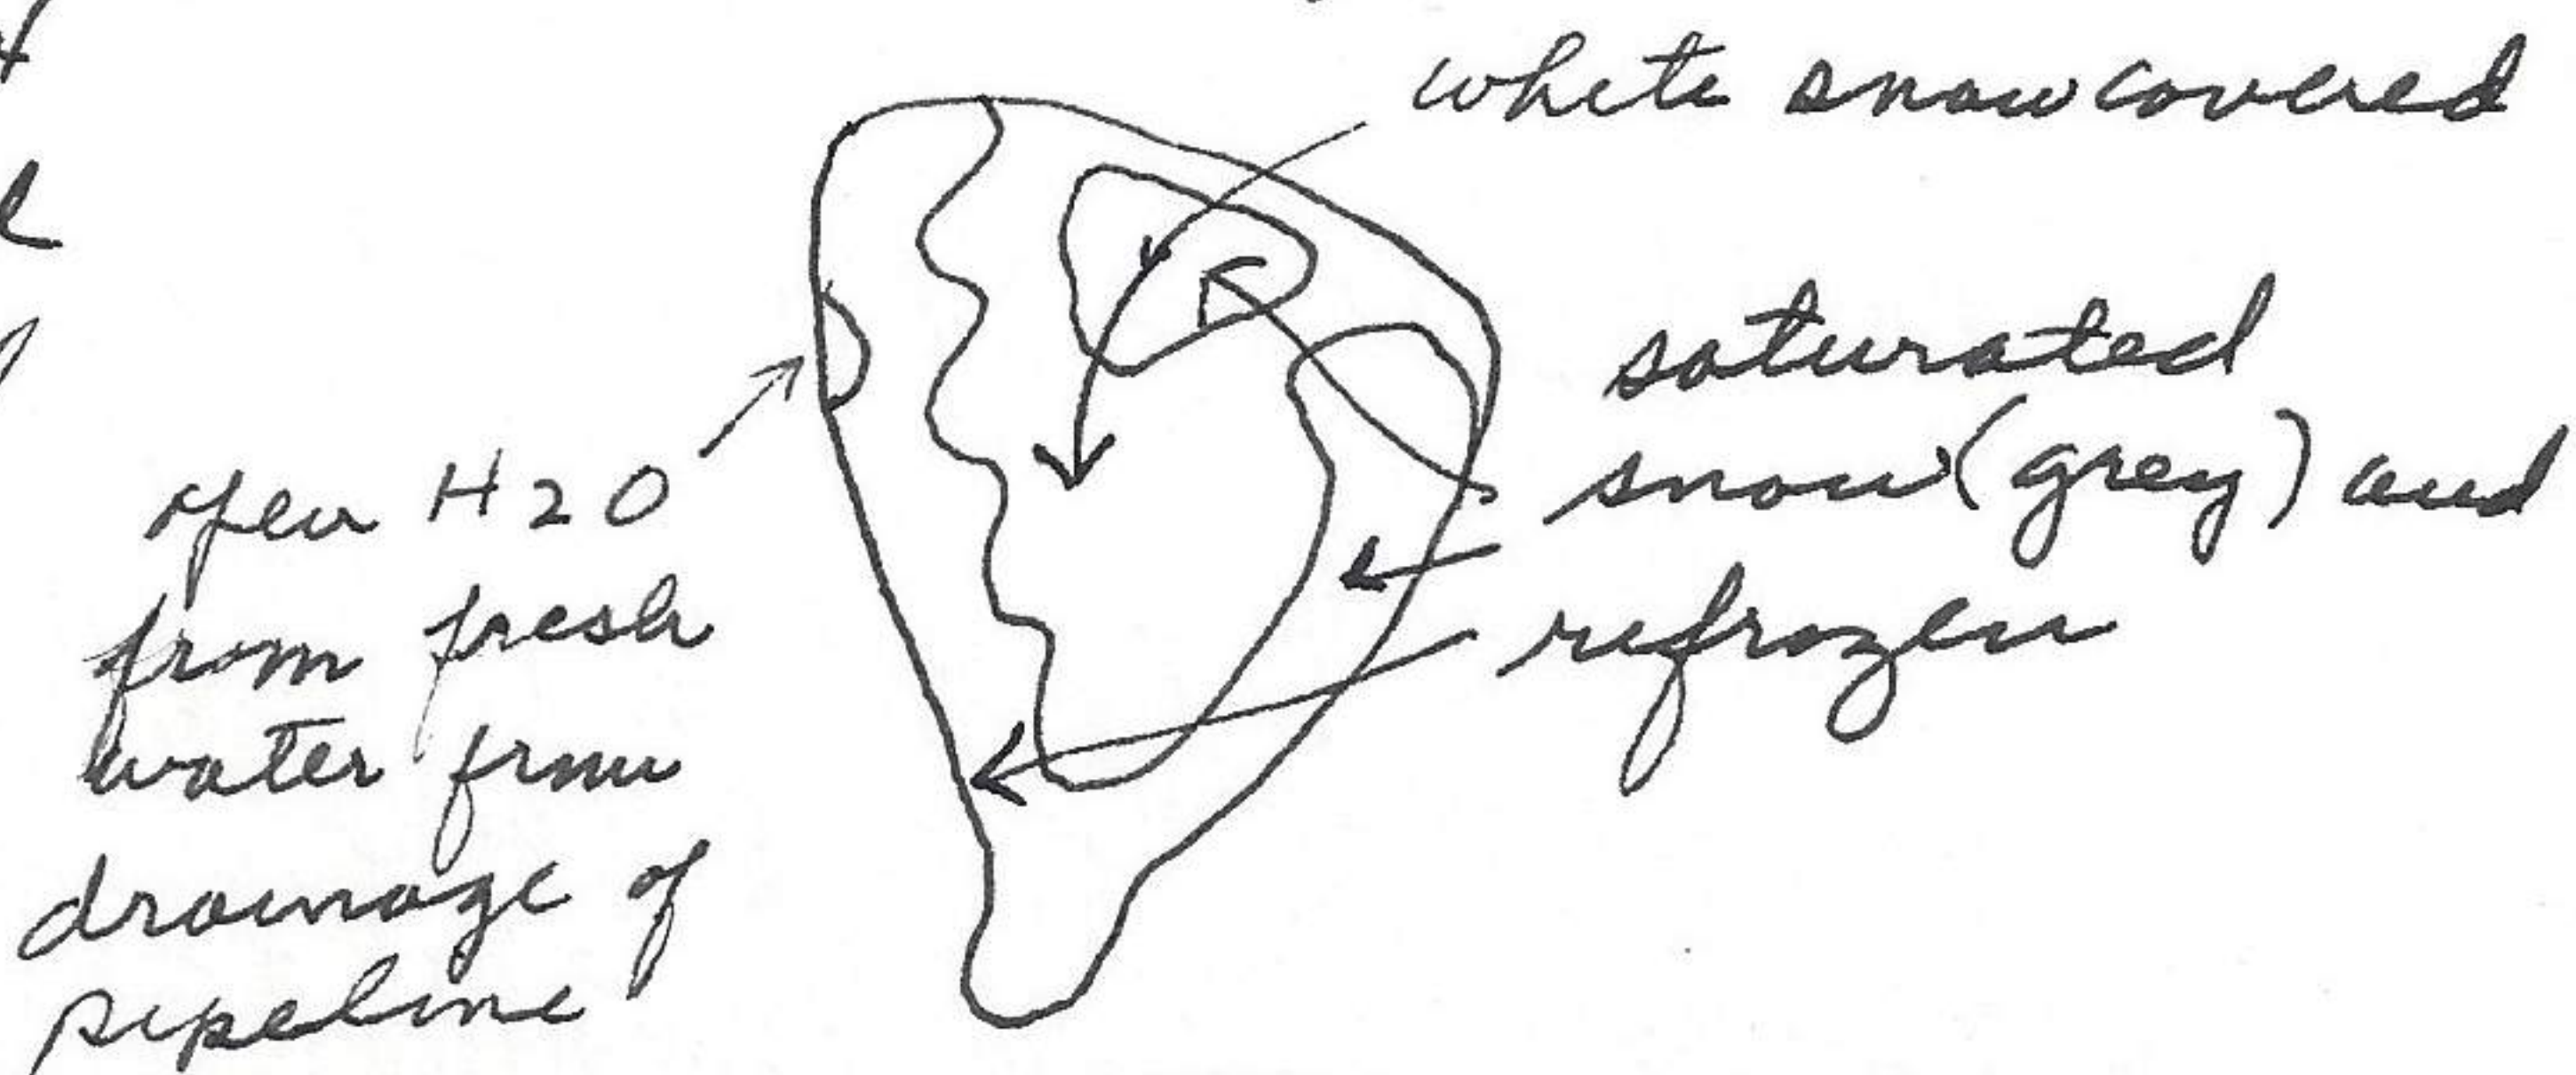 white snow covered
saturated
snow (grey) and
refrozen
open H2O
from fresh
water from
drainage of
pipeline